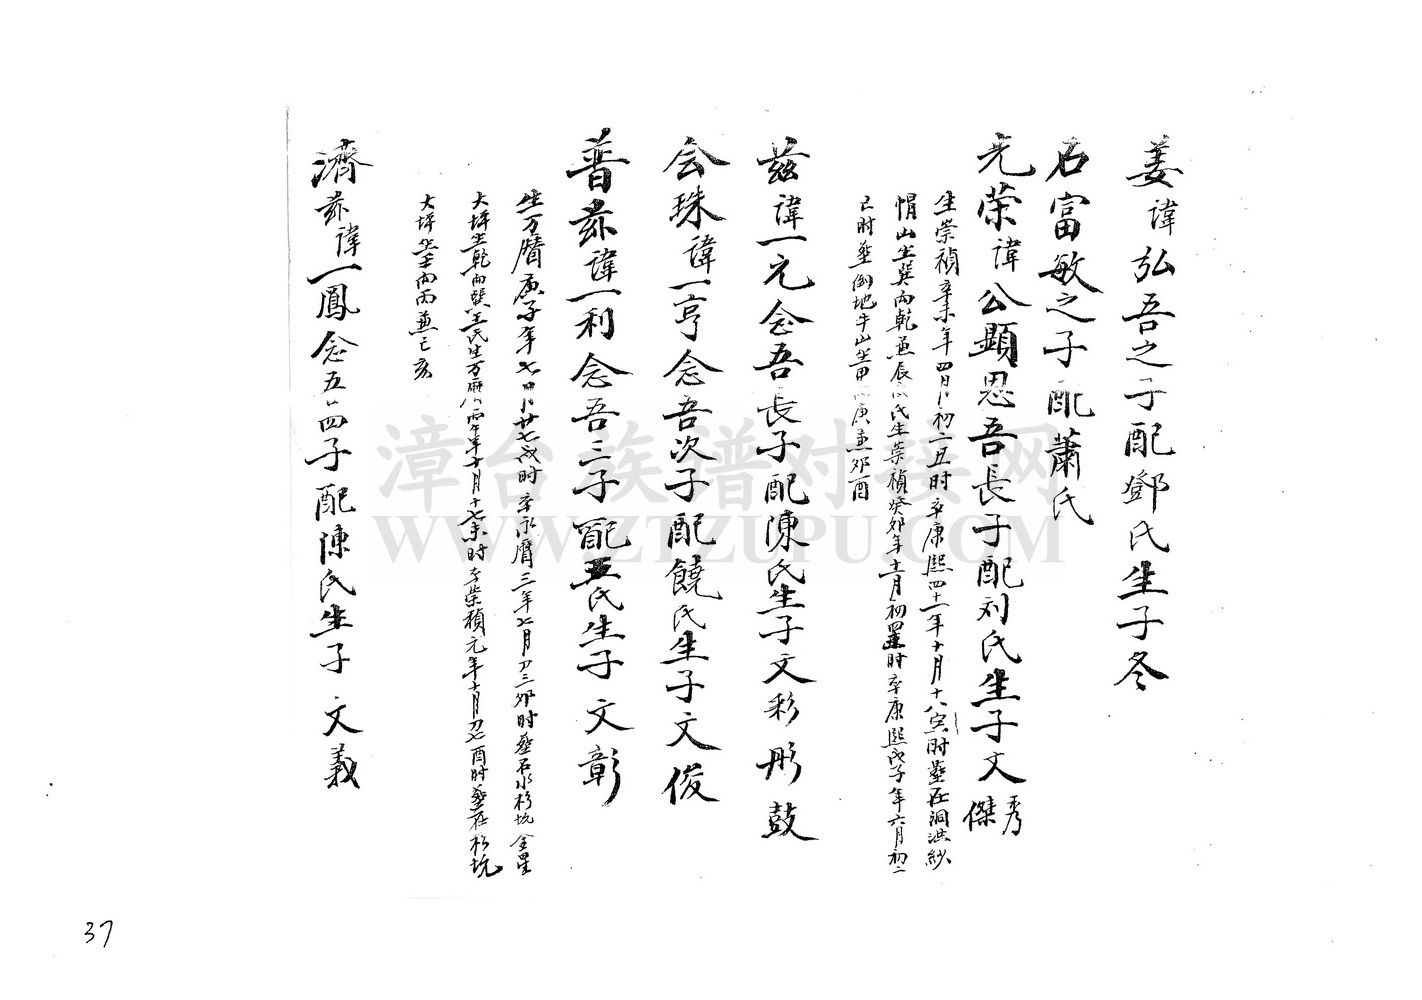 姜諱弘吾之子配鄧氏生子冬
名富敏之子配蕭氏
光荣諱公顯恩吾長子配刘氏生子文秀
傑
生崇禎辛未年四月初二丑时卒康熙四十一年十月十八寅时塟在洞洪紗
帽山坐巽向乾兼辰氏生崇禎癸卯年十一月初四时卒康熙戊子年六月初二
巳时塟倒地牛山坐甲庚兼卯酉
兹諱一元念吾長子配陳氏生子文彩彤鼓
会珠諱一亨念吾次子配饒氏生子文俊
普兹諱一利念吾三子配王氏生子文彰
生万曆庚子年七月廿七戌时卒永曆三年七月刀三卯时塟石水杉坑金星
大坪坐乾向巽王氏生万曆丙午年十月十七未时卒崇禎元年十月刀七酉时塟在杉坑
大坪坐壬向丙兼亡亥
濟兹諱一鳳念五四子配陳氏生子文義
漳台族谱对接网
WWW.ZTZUPU.COM
37